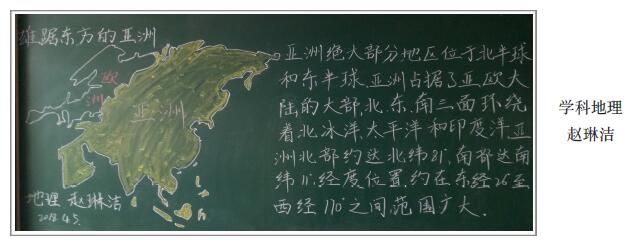 雄踞东方的亚洲
欧
洲
亚洲
地理 赵琳洁
2018.4.5.
亚洲绝大部分地区位于北半球
和东半球.亚洲占据了亚欧大
陆的大部,北、东、南三面环绕
着北冰洋、太平洋和印度洋.亚
洲北部约达北纬81°,南部达南
纬11°.经度位置,约在东经26°至
西经170°之间,范围广大.
学科地理
赵琳洁